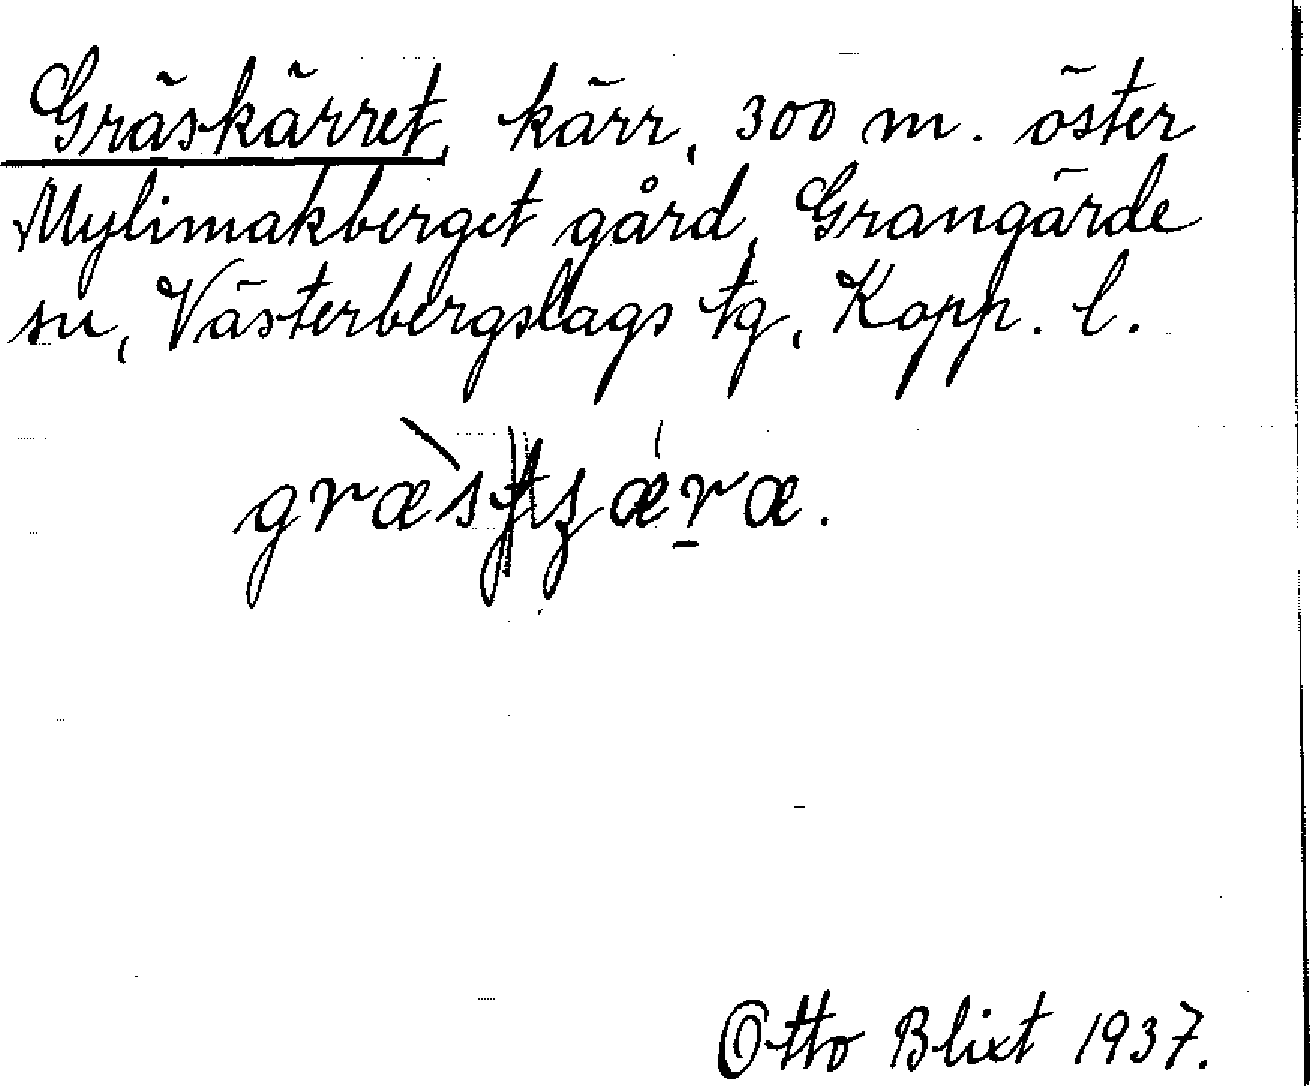 Gräskärret, kärr, 300 m. öster
Mylimakberget gård, Grangärde
sn, Västerbergslags tg, Kopp. l.
Otto Blixt 1937.